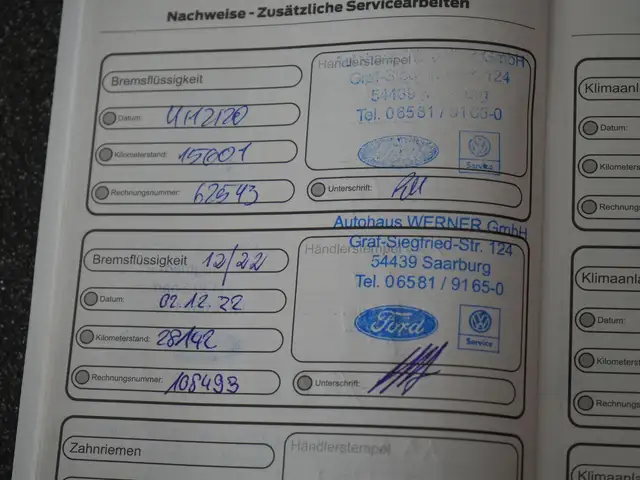 Nachweise - Zusätzliche Servicearbeiten
Bremsflüssigkeit
Datum:
Kilometerstand: 15601
Rechnungsnummer: 62543
Händlerstempel GmbH
124
54439
Tel. 06581 / 9165-0
Service
Unterschrift:
Bremsflüssigkeit 12/22
Datum: 02.12.22
Kilometerstand: 28142
Rechnungsnummer: 108493
Händlerstempel
Autohaus WERNER GmbH
Graf-Siegfried-Str. 124
54439 Saarburg
Tel. 06581 / 9165-0
Ford
Service
Unterschrift:
Zahnriemen
Händlerstempel
Klimaanl
Datum:
Kilometerst
Rechnungs
Klimaanla
Datum:
Kilometerst
Rechnungs
Klimaanla